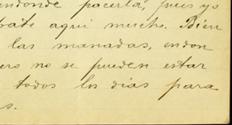 endonde pacerla, pues yo
bate aqui mucho. Bien
las manadas, endon
ers no se pueden estar
todos los dias para
s.